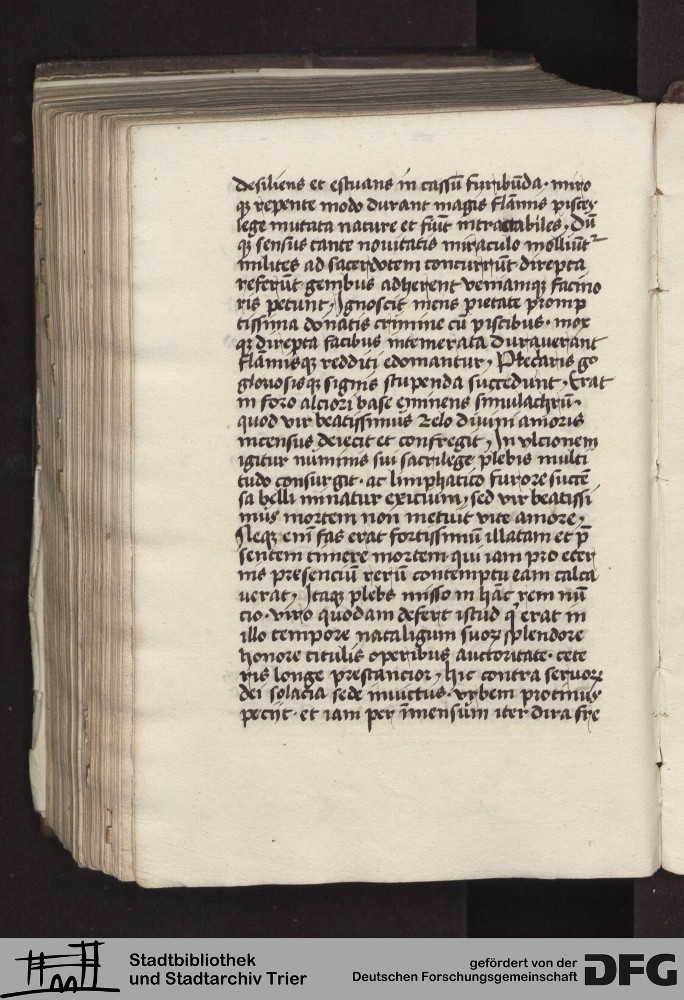 desiliens et estuans in cassū furibūda · miro
qꝫ repente modo durant magis flāmis pisces
lege mutata nature et fiūt intractabiles, Dū
qꝫ sensus tante nouitatis miraculo molliūt᷑
milites ad sacerdotem concurrūt direpta
referūt genibus adherent veniamqꝫ facino
ris petunt, Ignoscit mens pietate promp
tissima donatis crimine cū piscibus · mox
qꝫ direpta facibus intemerata durauerant
flāmisqꝫ redditi edomantur, Preclaris
gloriosisqꝫ signis stupenda succedunt, Erat
in foro alciori base eminens simulachrū ·
quod vir beatissimus zelo diuini amoris
incensus deiecit et confregit, In vlcionem
igitur numinis sui sacrilege plebis multi
tudo consurgit · ac limphatico furore succē
sa belli minatur exicium, sed vir beatissi
mus mortem non metuit vite amore,
Neqꝫ eni̅ fas erat fortissimū illatam et p̄
sentem timere mortem qui iam pro eter
nis presenciū rerū contemptu eam calca
uerat, Itaqꝫ plebs misso in hāc rem nū
cio · viro quodam defert istud q̄ erat in
illo tempore nataligum suoꝝ splendore
honore titulis operibus auctoritate · cete
ris longe prestancior, hic contra seruoꝝ
dei solacia sede inuictus · vrbem protinus
peciit · et iam per īmensum iter dira fre
Stadtbibliothek
und Stadtarchiv Trier
gefördert von der
Deutschen Forschungsgemeinschaft
DFG